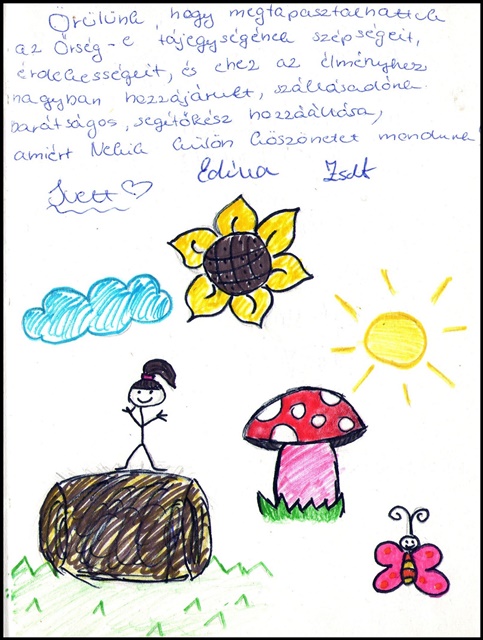 Örülünk, hogy megtapasztalhattuk
az Őrség-e tájegységének szépségeit,
érdekességeit, és ehez az élményhez
nagyban hozzájárult, szállásadónk
barátságos, segítőkész hozzáállása,
amiért Nekik külön köszönetet mondunk
Edina Zsolt
Ivett